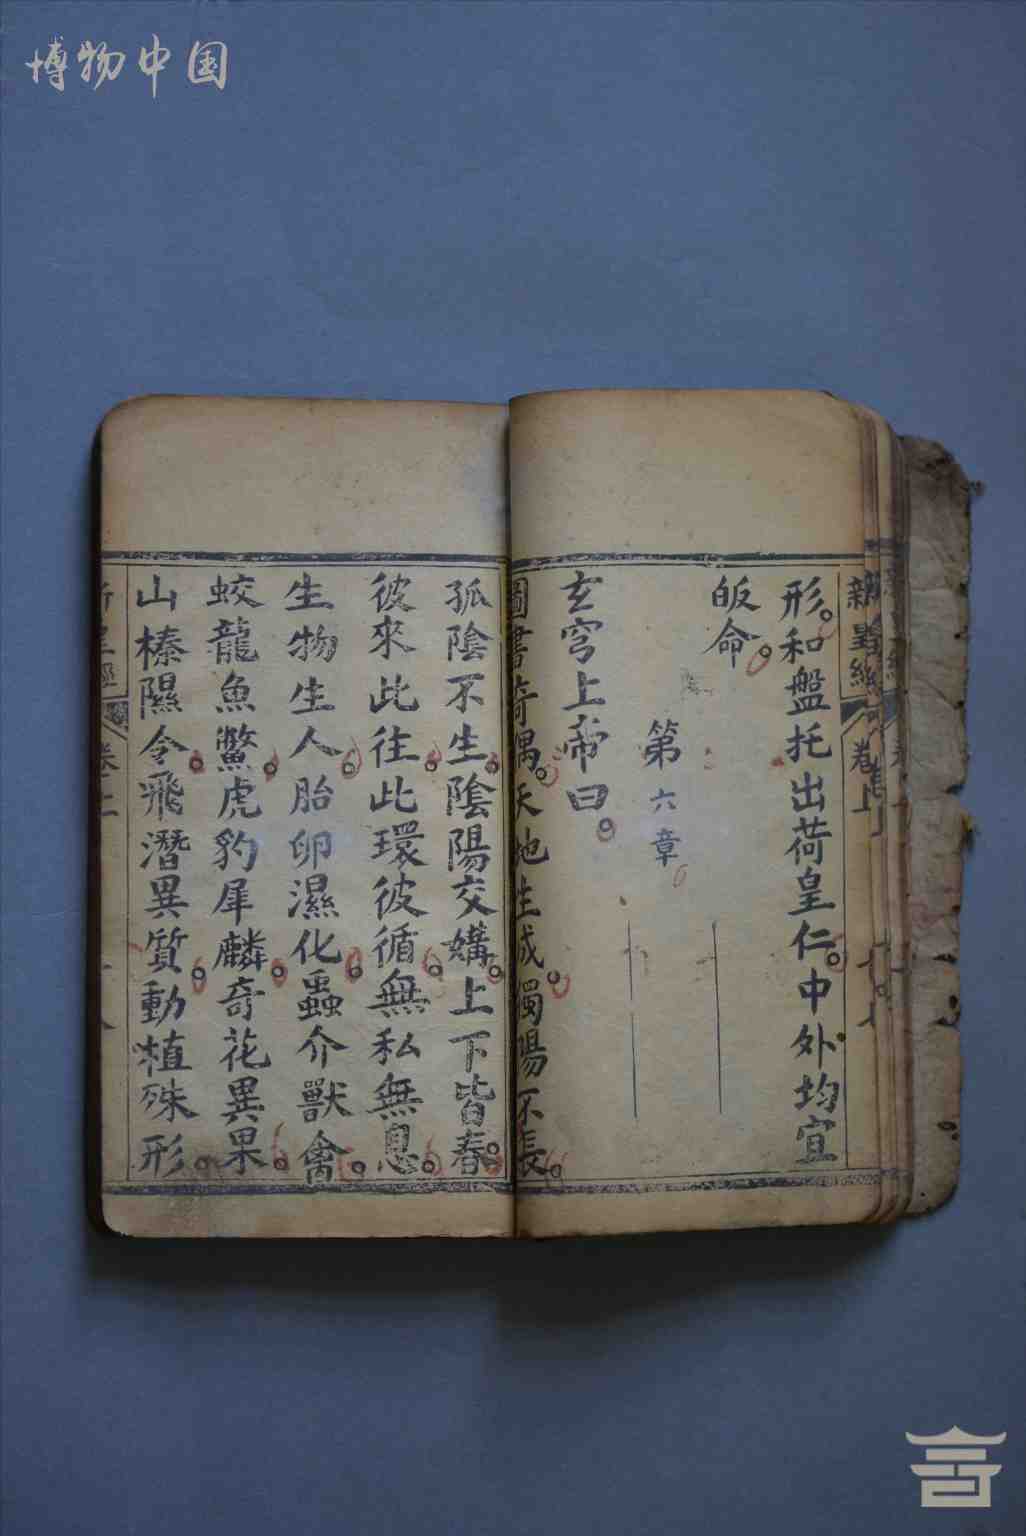 博物中国
形。和盤托出荷皇仁。中外均宜
皈命。
第六章
玄穹上帝曰。
圖書奇偶。天地生成。獨陽不長。
孤陰不生。陰陽交媾。上下皆春。
彼來此往。此環彼循。無私無息。
生物生人。胎卵濕化。蟲介獸禽。
蛟龍魚鱉。虎豹犀麟。奇花異果。
山榛隰苓。飛潛異質。動植殊形。
卷二